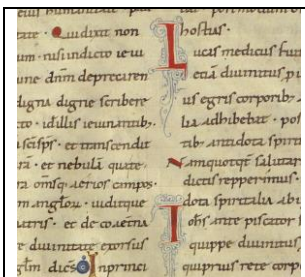 tate · Qui dixit non
um · nisi indicto ieiu
une dnm deprecaren
digna digne scribere
to · id illis ieiunantib;
scsps · et transcendit
omsq; aerios campos ·
m anglou · uiditque
atris · et de coaetna
e diuinitate exorsus
glm dices In princi
hostus ·
Lucas medicus
etia diuinitus
us egris corporib;
ia adhibebat · pos
tib; antidota spirit
Namquotqt salutar
dictis repperimus ·
Idota spiritalia
ohs ante piscator
quippe diuinitus
quiprius rete corp